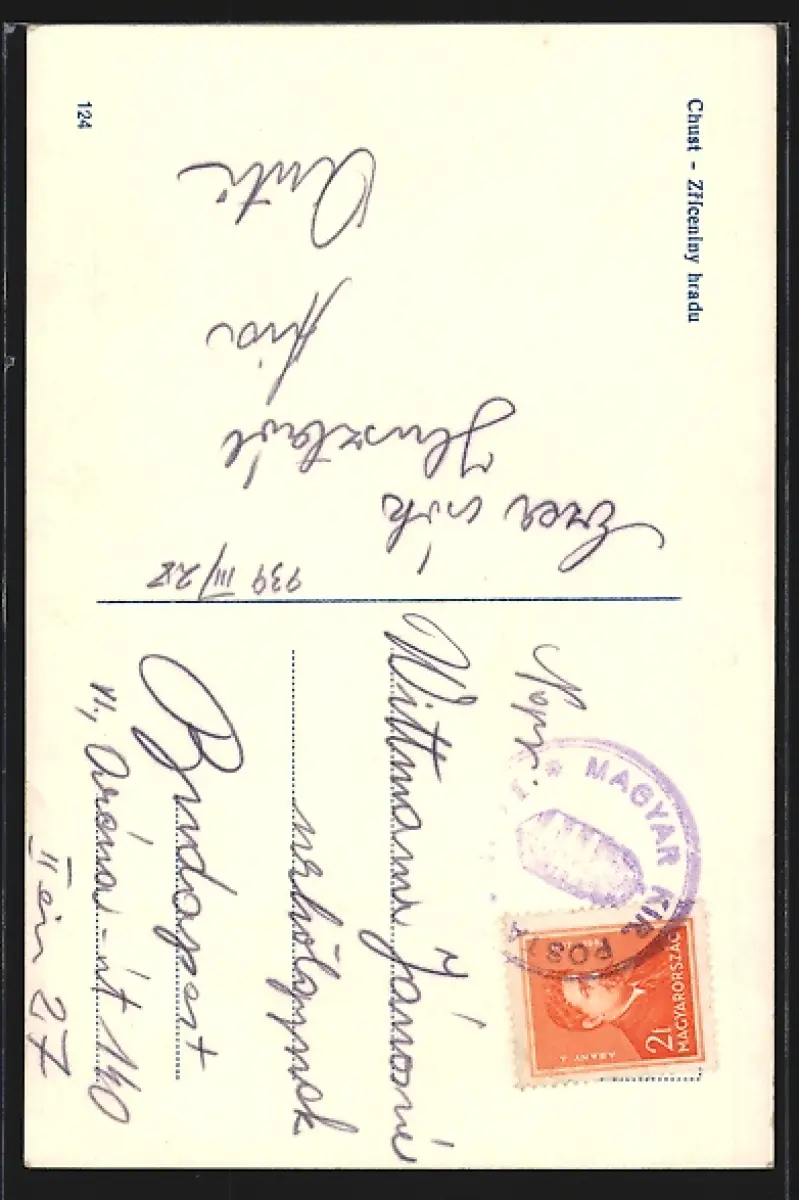 Chust - Zříceniny hradu
Ezer csók
Husztról
939 III/28
124
Nagys.
Wittmann Jánosné
úrhölgynek
Budapest
VI., Aréna-út 140
II em 27
* MAGYAR KIR. POSTA
2f
MAGYARORSZÁG
ARANY J.